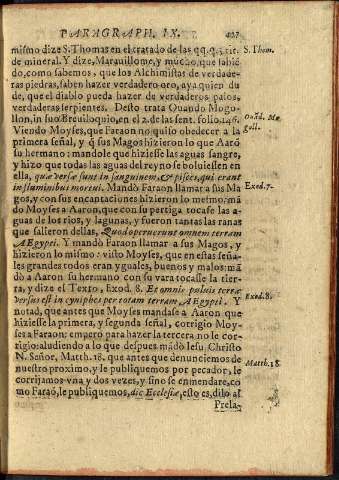 PARAGRAPH. IX. 427
mismo dize S. Thomas en el tratado de las qq. q. 3. tit. S. Thom.
de mineral. Y dize, Marauillome, y mucho, que sabiē
do, como sabemos, que los Alchimistas de verdade-
ras piedras, saben hazer verdadero oro, aya quien du
de, que el diablo pueda hazer de verdaderos palos,
verdaderas serpientes. Desto trata Quando Mogu-
llon, in suo Breuiloquio, en el 2. de las sent. folio. 146.
Viendo Moyses, que Faraon no quiso obedecer a la
primera señal, y q̃ sus Magos hizieron lo que Aarō
su hermano: mandole que hiziesse las aguas sangre,
y hizo que todas las aguas del reyno se boluiessen en
ella, quæ versæ sunt in sanguinem, & pisces, qui erant
in fluminibus mortui. Mandò Faraon llamar a sus Ma Exod. 7.
gos, y con sus encantaciones hizieron lo mesmo: mā
do Moyses a Aaron, que con su pertiga tocasse las a-
guas de los rios, y lagunas, y fueron tantas las ranas
que salieron dellas, Quod operuerunt omnem terram
AEgypti. Y mandò Faraon llamar a sus Magos, y
hizieron lo mismo: visto Moyses, que en estas seña-
les grandes todos eran yguales, buenos y malos: mā
dò a Aaron su hermano con su vara tocasse la tier-
ra, y dize el Texto, Exod. 8. Et omnis puluis terræ
versus est in cyniphes per totam terram AEgypti. Y Exod. 8.
notad, que antes que Moyses mandasse a Aaron que
hiziesse la primera, y segunda señal, corrigio Moy-
ses a Faraon: empero para hazer la tercera no le cor-
rigio: aludiendo a lo que despues mādò Iesu Christo
N. Señor, Matth. 18. que antes que denunciemos de
nuestro proximo, y le publiquemos por pecador, le Matth. 18.
corrijamos vna y dos vezes, y sino se enmendare, co
mo Faraō, le publiquemos, dic Ecclesiæ, esto es, dilo al
Prela-